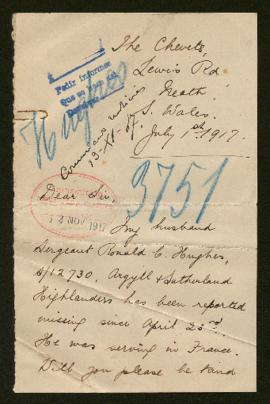 The Chevets,
Lewis Rd
Neath.
S. Wales.
July 1st 1917.
Pedir informes
Hughes
13-XI-17
3751
Dear Sir,
12 NOV 1917
My husband
Sergeant Ronald C. Hughes,
S/12730, Argyll & Sutherland
Highlanders has been reported
missing since April 23rd.
He was serving in France.
Will you please be kind